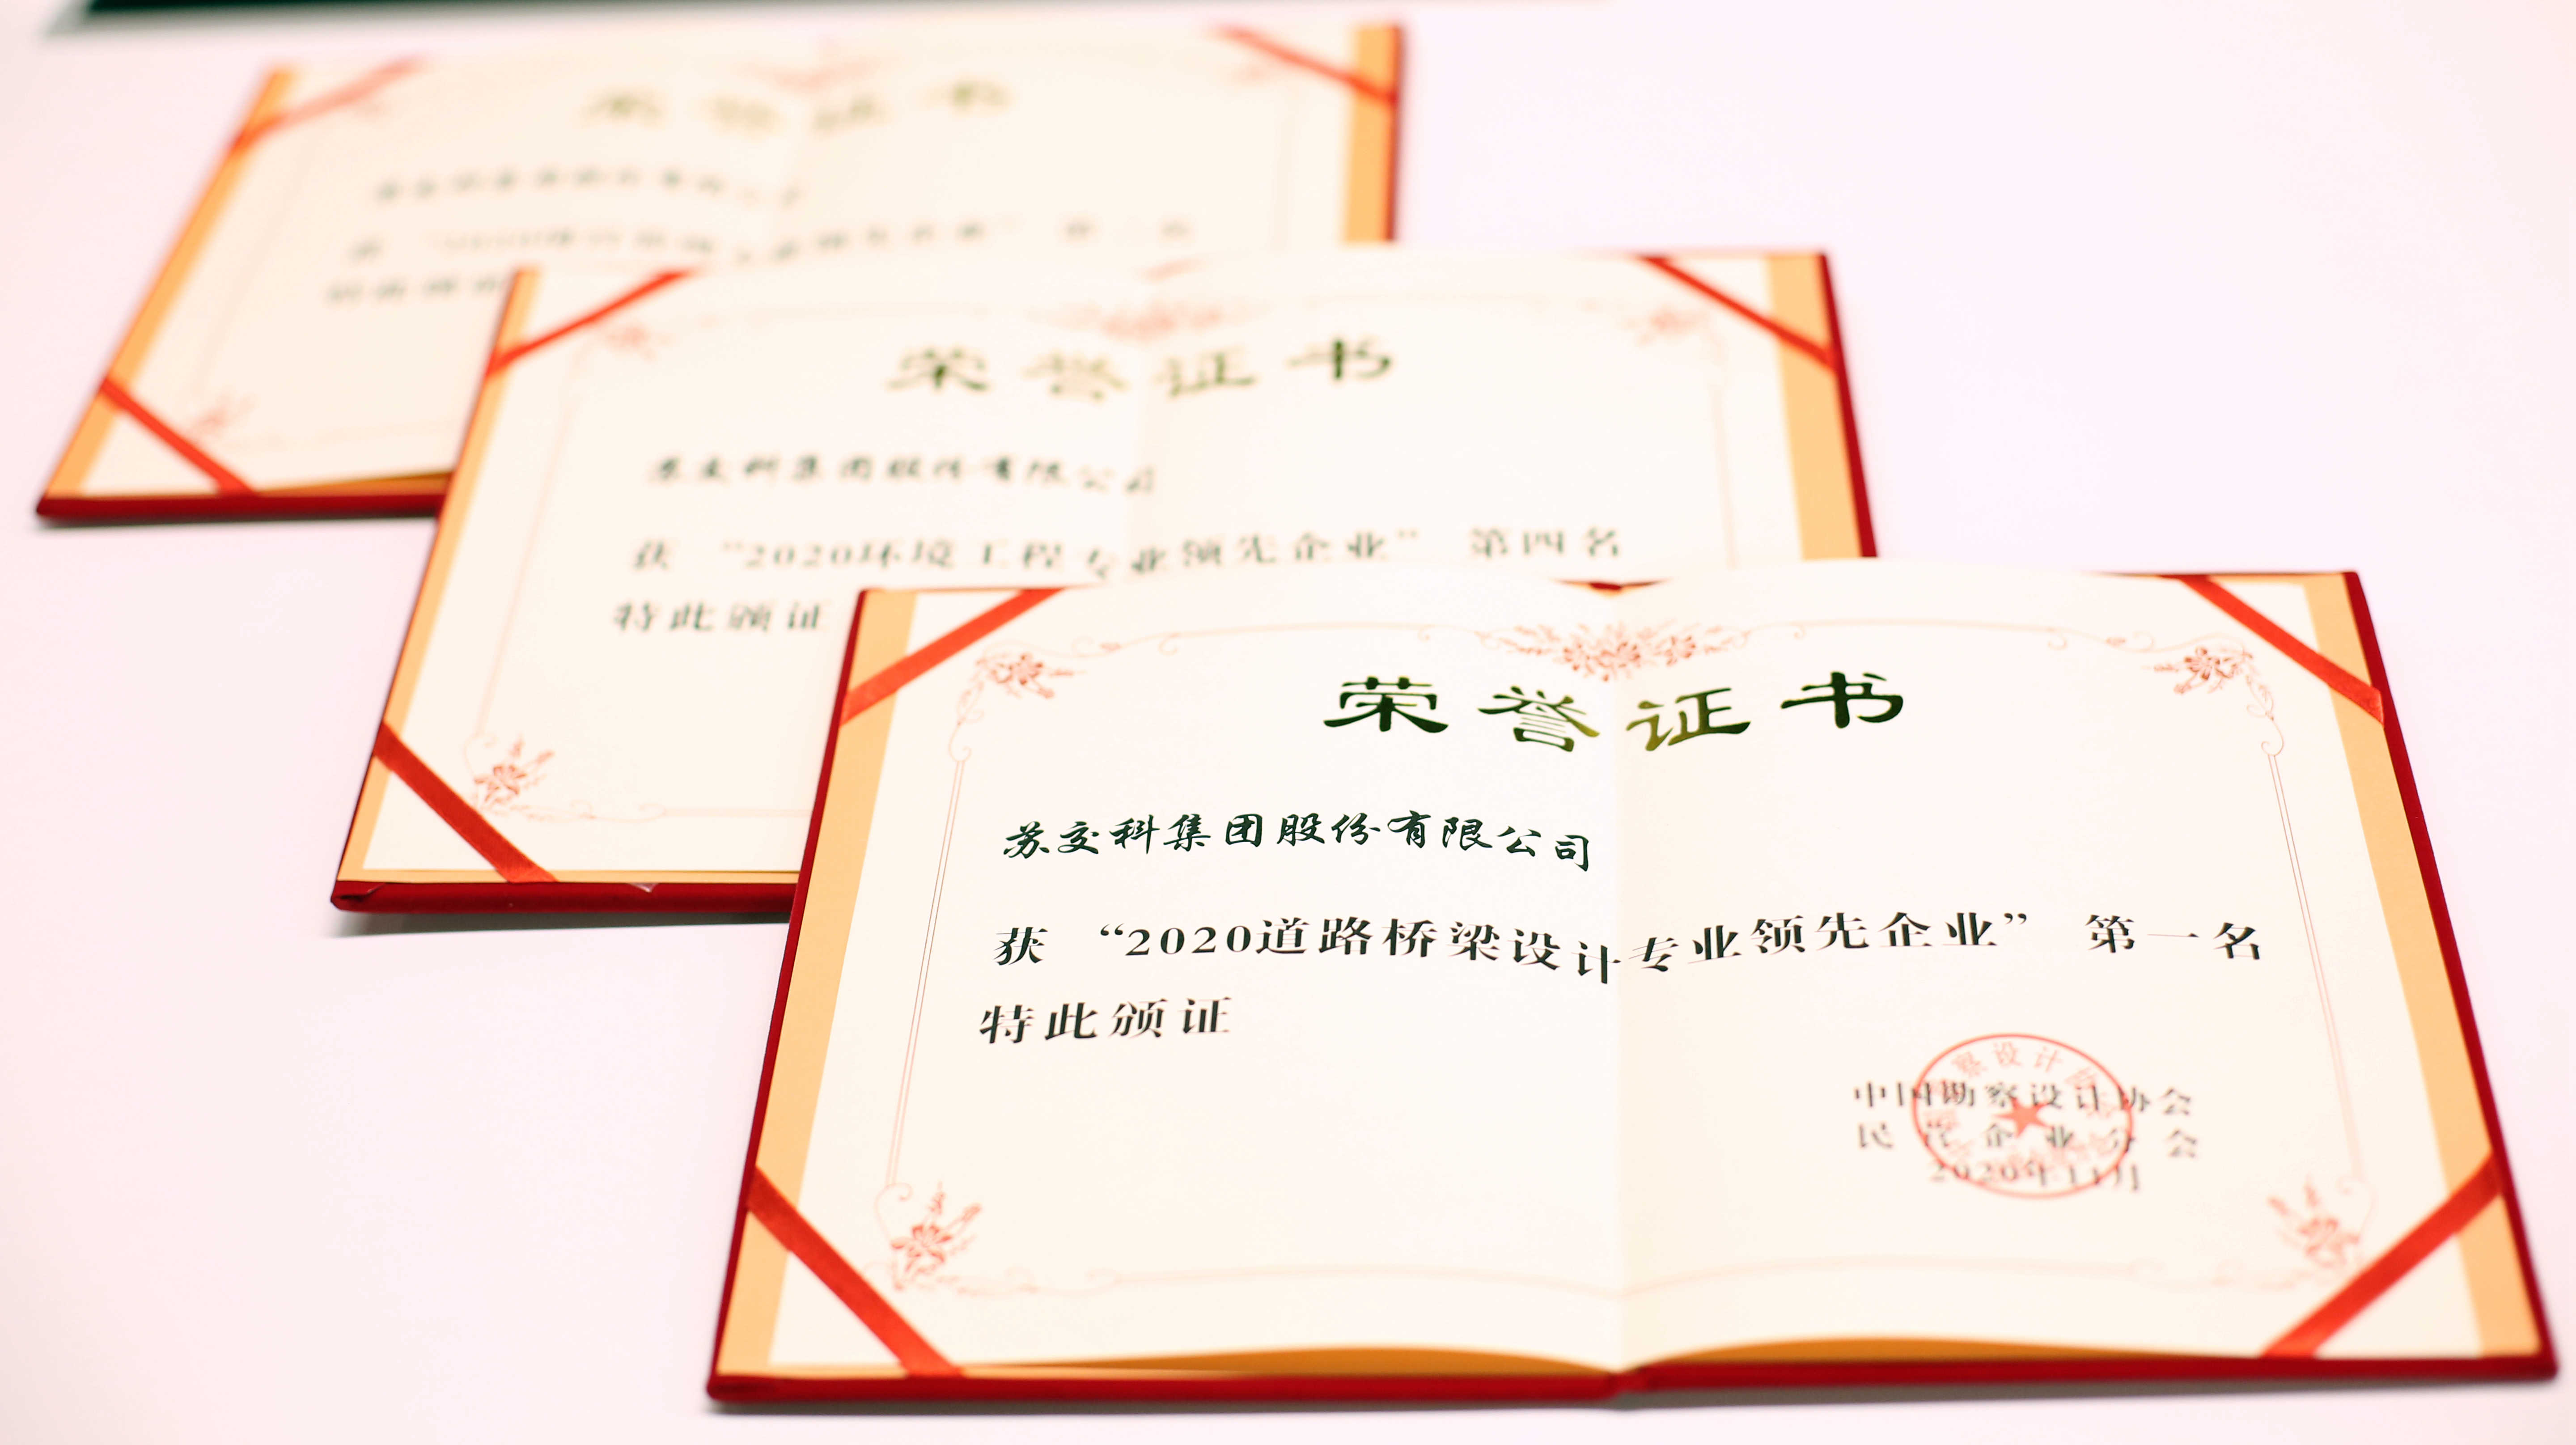 荣誉证书
荣誉证书
苏交科集团股份有限公司
获 “2020环境工程专业领先企业” 第四名
特此颁证
荣誉证书
苏交科集团股份有限公司
获 “2020道路桥梁设计专业领先企业” 第一名
特此颁证
中国勘察设计协会
民营企业分会
2020年11月